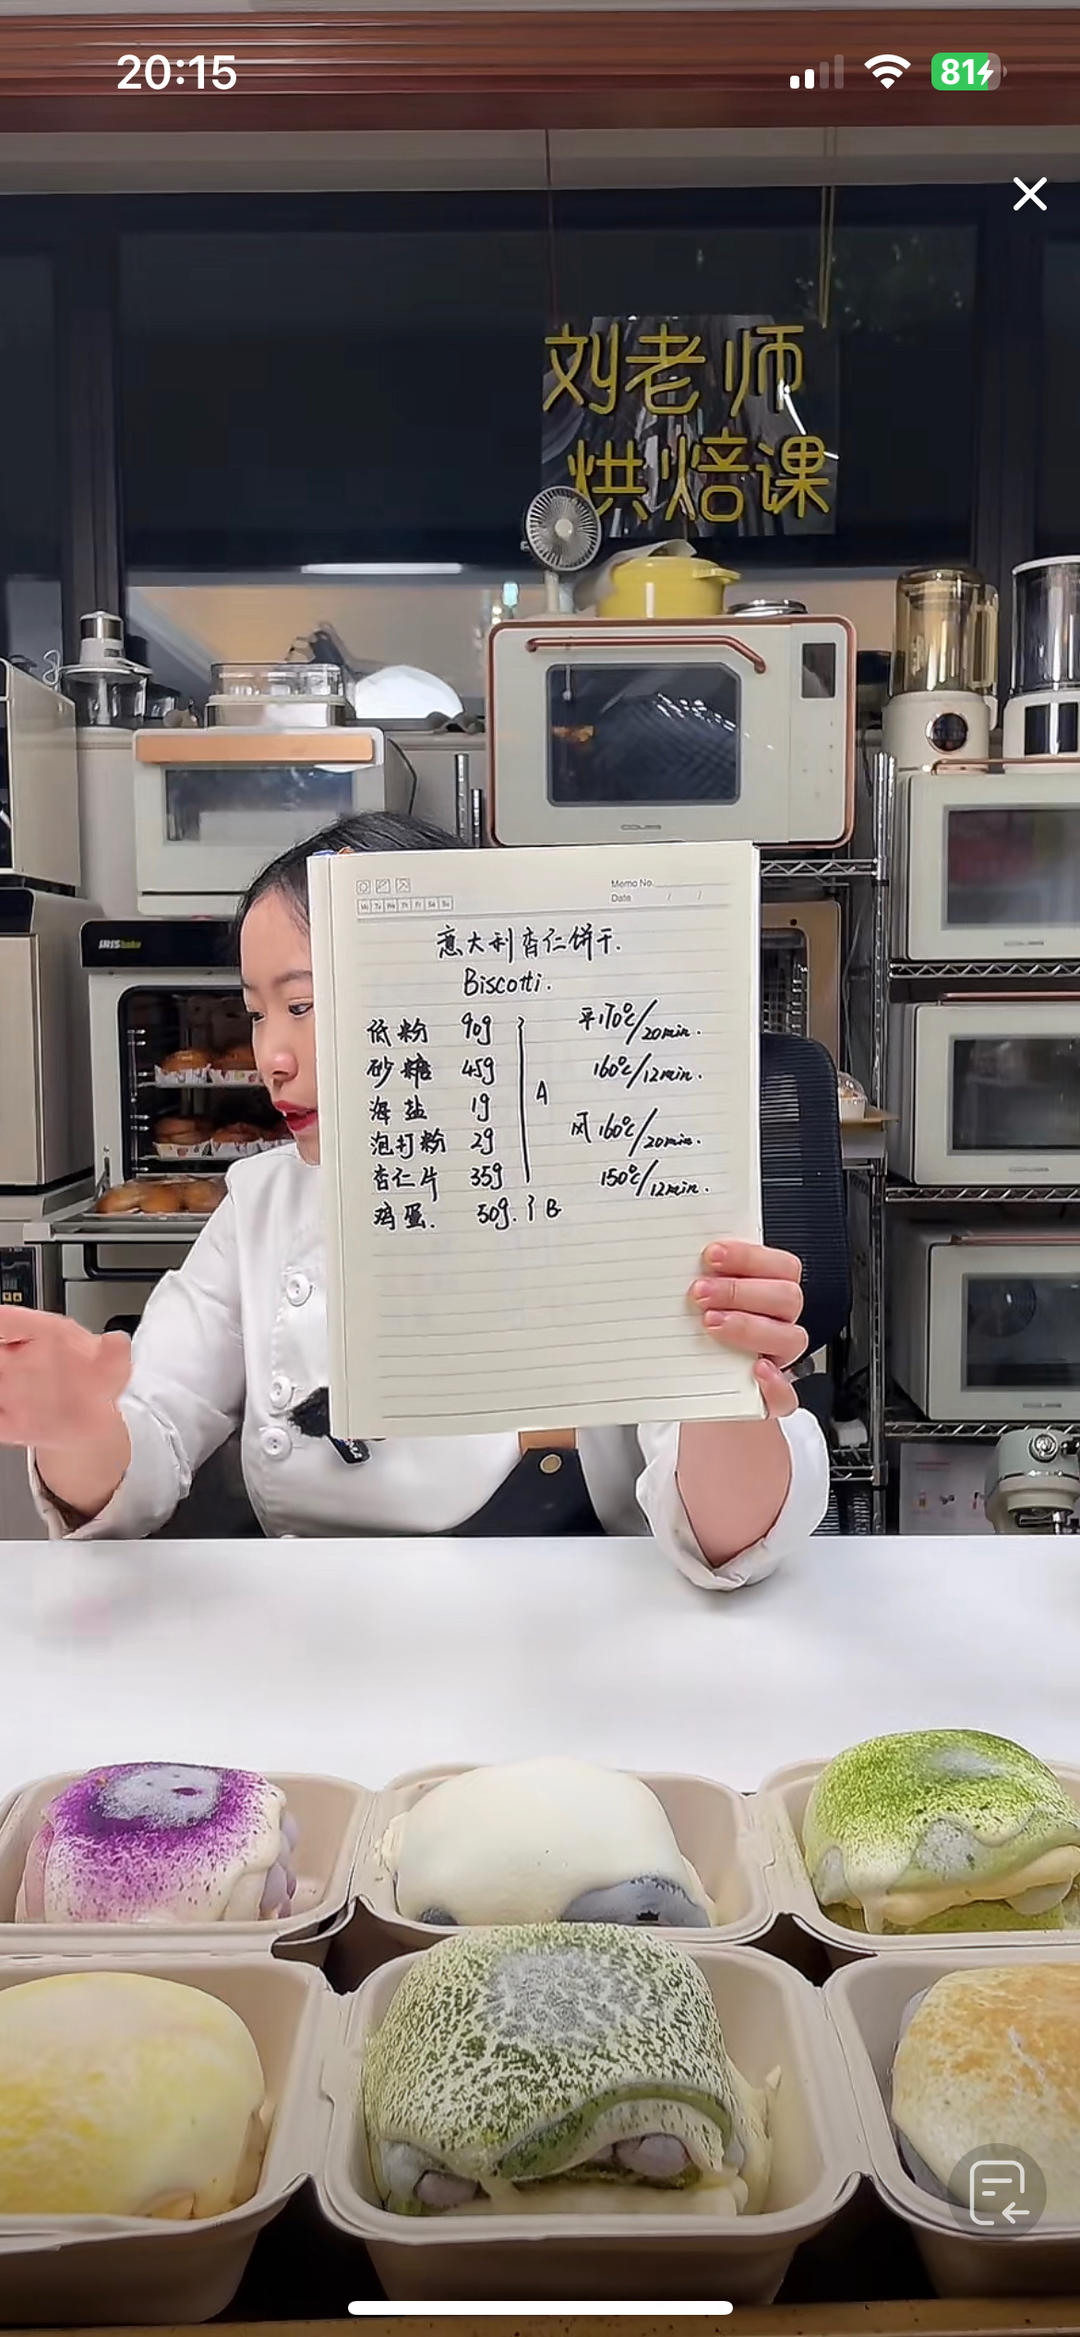 20:15
81
刘老师
烘焙课
Memo No.
Date / /
Mo Tu We Th Fr Sa Su
意大利杏仁饼干.
Biscotti.
低粉 90g
砂糖 45g
海盐 1g
泡打粉 2g
杏仁片 35g
A
鸡蛋. 50g. B
平170℃/20min.
160℃/12min.
风160℃/20min.
150℃/12min.